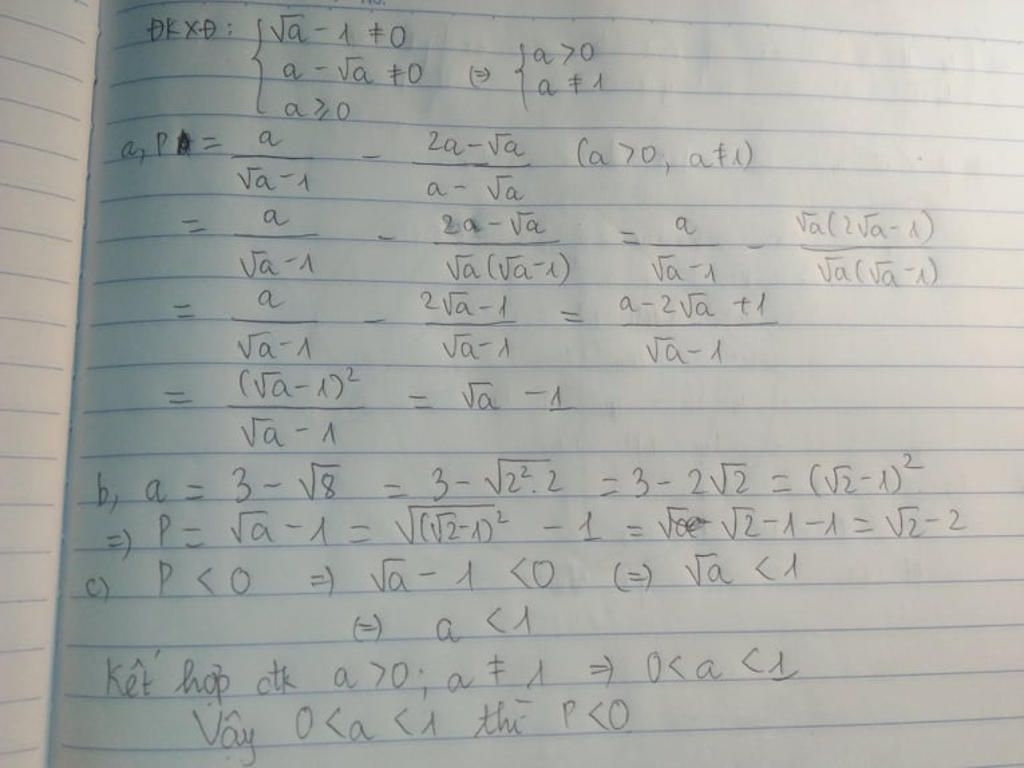 ĐKXĐ: { √a - 1 ≠ 0
a - √a ≠ 0 (=) { a > 0
a ≥ 0 a ≠ 1
a, P = a/(√a - 1) - (2a - √a)/(a - √a) (a > 0, a ≠ 1)
= a/(√a - 1) - (2a - √a)/(√a(√a - 1)) = a/(√a - 1) - √a(2√a - 1)/(√a(√a - 1))
= a/(√a - 1) - (2√a - 1)/(√a - 1) = (a - 2√a + 1)/(√a - 1)
= (√a - 1)²/(√a - 1) = √a - 1
b, a = 3 - √8 = 3 - √(2².2) = 3 - 2√2 = (√2 - 1)²
=) P = √a - 1 = √((√2 - 1)²) - 1 = √2 - 1 - 1 = √2 - 2
c) P < 0 =) √a - 1 < 0 (=) √a < 1
(=) a < 1
Kết hợp đk a > 0; a ≠ 1 =) 0 < a < 1
Vậy 0 < a < 1 thì P < 0